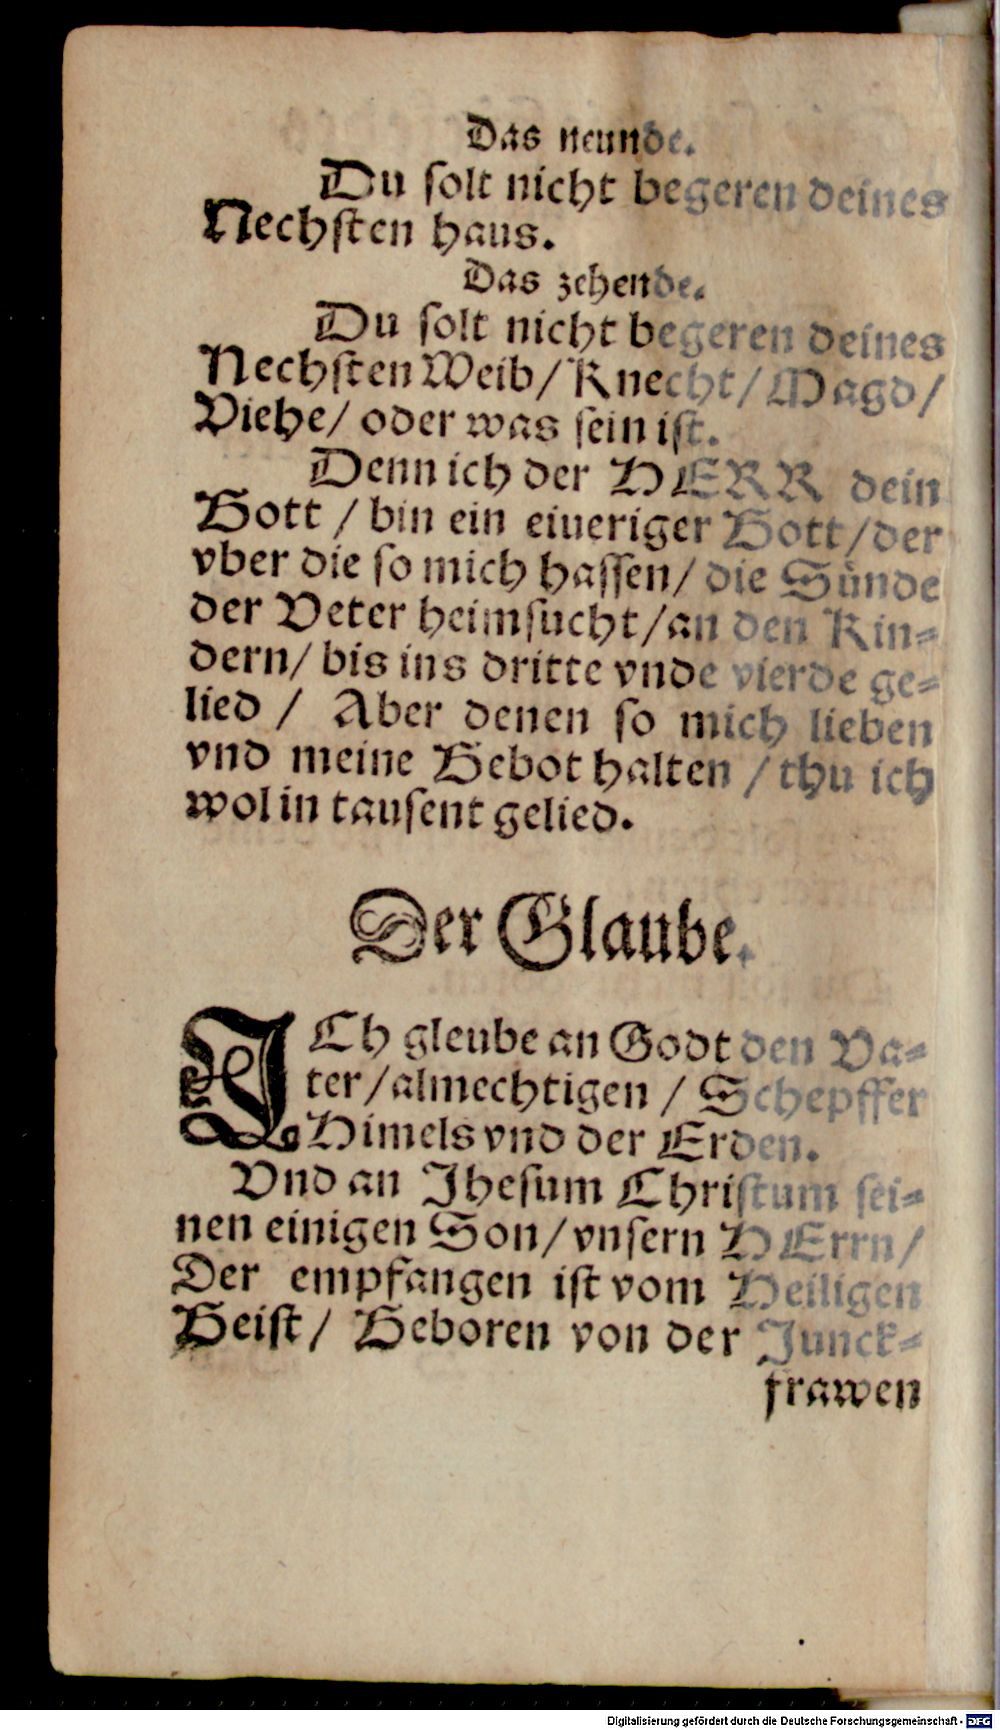 Das neunde.
Du solt nicht begeren deines
Nechsten haus.
Das zehende.
Du solt nicht begeren deines
Nechsten Weib/ Knecht/ Magd/
Viehe/ oder was sein ist.
Denn ich der HERR dein
Gott / bin ein eiueriger Gott/ der
vber die so mich hassen/ die Sünde
der Veter heimsucht/ an den Kin-
dern/ bis ins dritte vnde vierde ge-
lied / Aber denen so mich lieben
vnd meine Gebot halten / thu ich
wol in tausent gelied.
Der Glaube.
ICh gleube an Godt den Va-
ter/ almechtigen / Schepffer
Himels vnd der Erden.
Vnd an Jhesum Christum sei-
nen einigen Son/ vnsern HErrn/
Der empfangen ist vom Heiligen
Geist/ Geboren von der Junck-
frawen
Digitalisierung gefördert durch die Deutsche Forschungsgemeinschaft - DFG